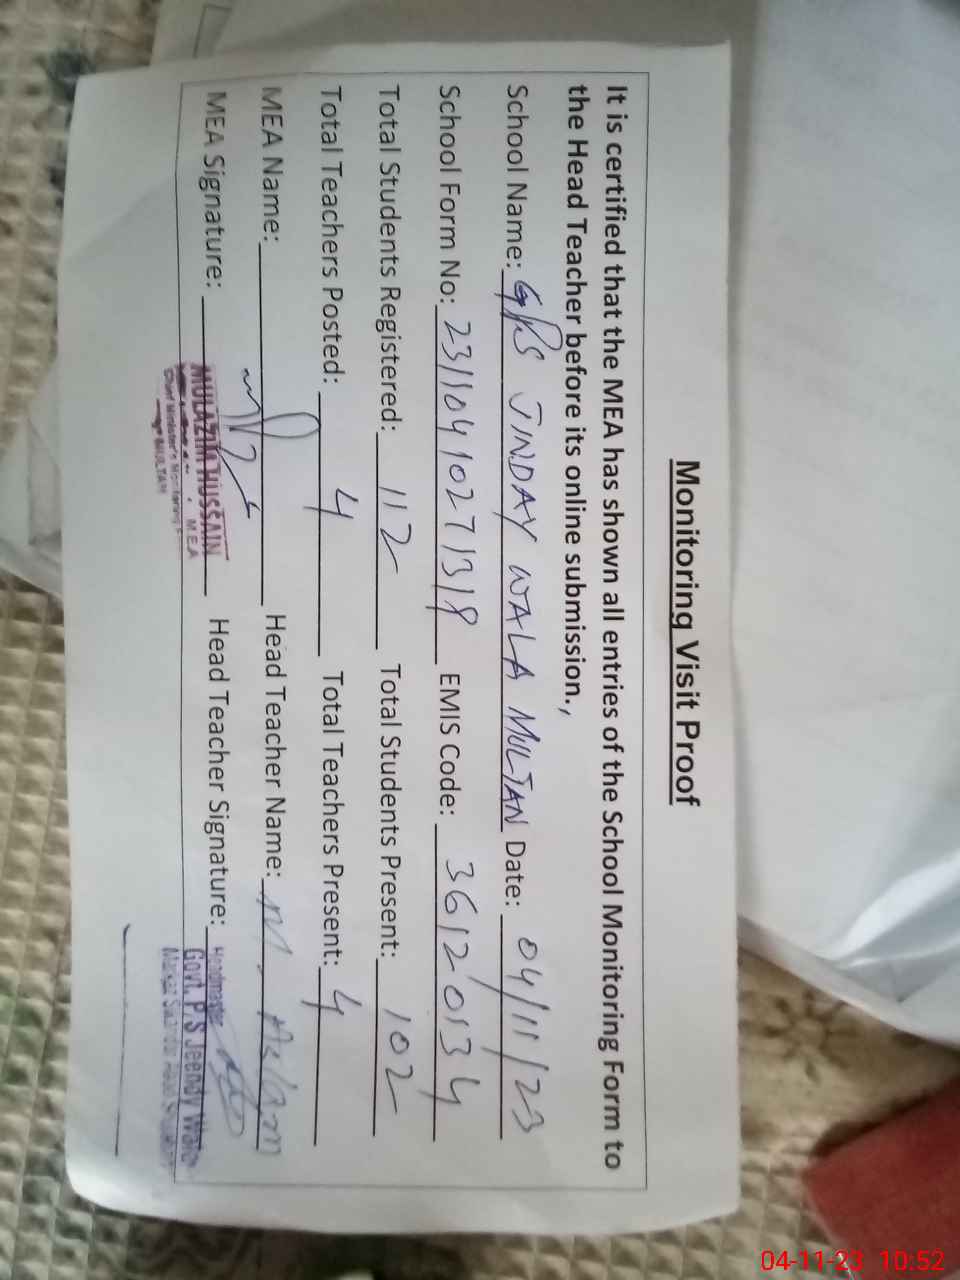 Monitoring Visit Proof
It is certified that the MEA has shown all entries of the School Monitoring Form to
the Head Teacher before its online submission.,
School Name: GPS JINDAY WALA MULTAN Date: 04/11/23
School Form No: 23110410271318 EMIS Code: 36120134
Total Students Registered: 112 Total Students Present: 102
Total Teachers Posted: 4 Total Teachers Present: 4
MEA Name: Head Teacher Name: M. Aslam
MEA Signature: Head Teacher Signature:
MULAZIM HUSSAIN
M.E.A
Chief Minister's Monitoring
MULTAN
Headmaster
Govt. P.S Jeendy Wala
04-11-23 10:52